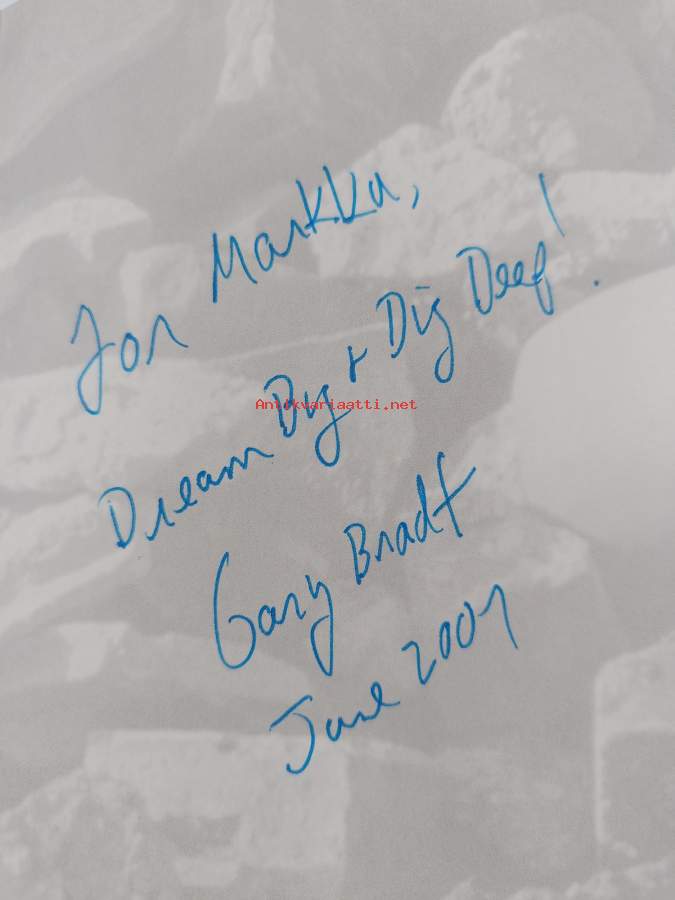 For Markku,
Dream Big + Dig Deep!
Antikvariaatti.net
Gary Bradt
June 2007